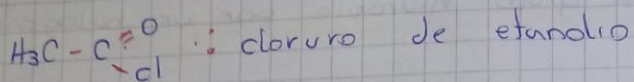 H₃C - C =O -Cl ∴ cloruro de etanolio